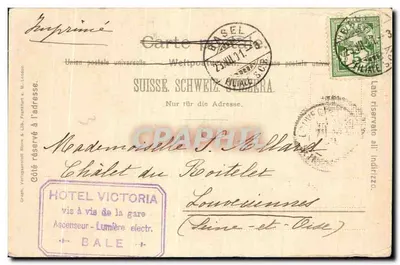 Imprimé
Carte postale.
Weltpostverein
Union postale universelle.
SUISSE. SCHWEIZ. SVIZZERA.
Nur für die Adresse.
Côté réservé à l'adresse.
Lato riservato all indirizzo.
BASEL
FILIALE S.C.B.
5
Mademoiselle S. Mollard
Châlet du
Louveciennes
(Seine-et-Oise)
HOTEL VICTORIA
vis à vis de la gare
Ascenseur - Lumière electr.
BALE